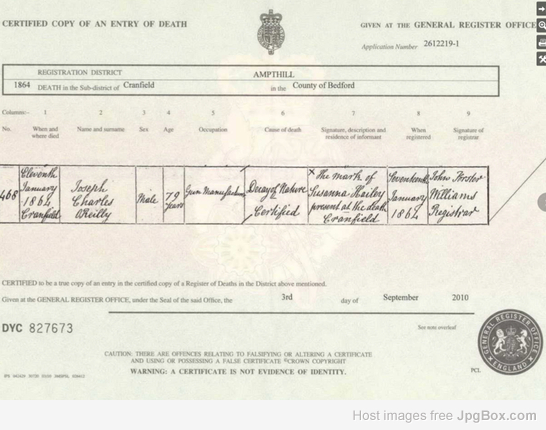 CERTIFIED COPY OF AN ENTRY OF DEATH
GIVEN AT THE GENERAL REGISTER OFFICE
Application Number 2612219-1
REGISTRATION DISTRICT AMPTHILL
1864 DEATH in the Sub-district of Cranfield in the County of Bedford
Columns:- 1 2 3 4 5 6 7 8 9
No. When and where died Name and surname Sex Age Occupation Cause of death Signature, description and residence of informant When registered Signature of registrar
468 Eleventh January 1864 Cranfield
Joseph Charles OReilly
Male
79 years
Decay of Nature Certified
X The mark of Susanna Hailey present at the death Cranfield
Seventeenth January 1864
John Williams Registrar
CERTIFIED to be a true copy of an entry in the certified copy of a Register of Deaths in the District above mentioned.
Given at the GENERAL REGISTER OFFICE, under the Seal of the said Office, the 3rd day of September 2010
DYC 827673
See note overleaf
CAUTION: THERE ARE OFFENCES RELATING TO FALSIFYING OR ALTERING A CERTIFICATE
AND USING OR POSSESSING A FALSE CERTIFICATE ©CROWN COPYRIGHT
WARNING: A CERTIFICATE IS NOT EVIDENCE OF IDENTITY.
GENERAL REGISTER OFFICE
ENGLAND
Host images free JpgBox.com